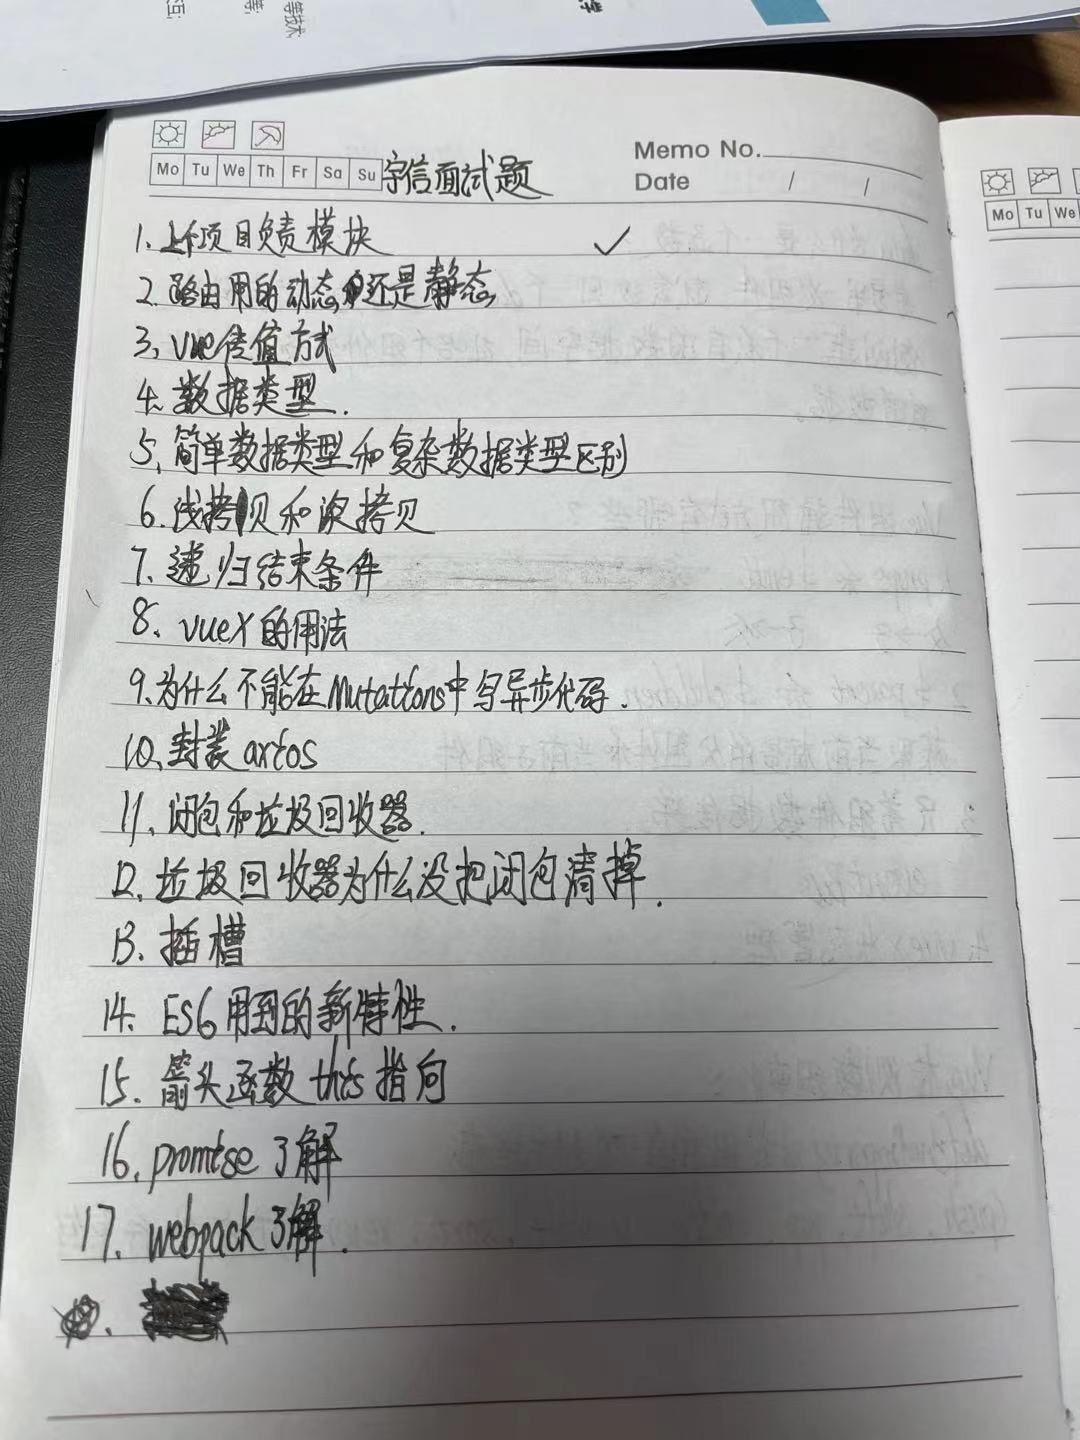 Mo Tu We Th Fr Sa Su
宇信面试题
Memo No.
Date / /
1. 上个项目负责模块 ✓
2. 路由用的动态,还是静态,
3. vue传值方式
4. 数据类型.
5. 简单数据类型和复杂数据类型区别
6. 浅拷贝和深拷贝
7. 递归结束条件
8. vuex的用法
9. 为什么不能在Mutations中写异步代码.
10. 封装axios
11. 闭包和垃圾回收器.
12. 垃圾回收器为什么没把闭包清掉.
13. 插槽
14. ES6用到的新特性.
15. 箭头函数this指向
16. promise了解
17. webpack了解.
Mo Tu We